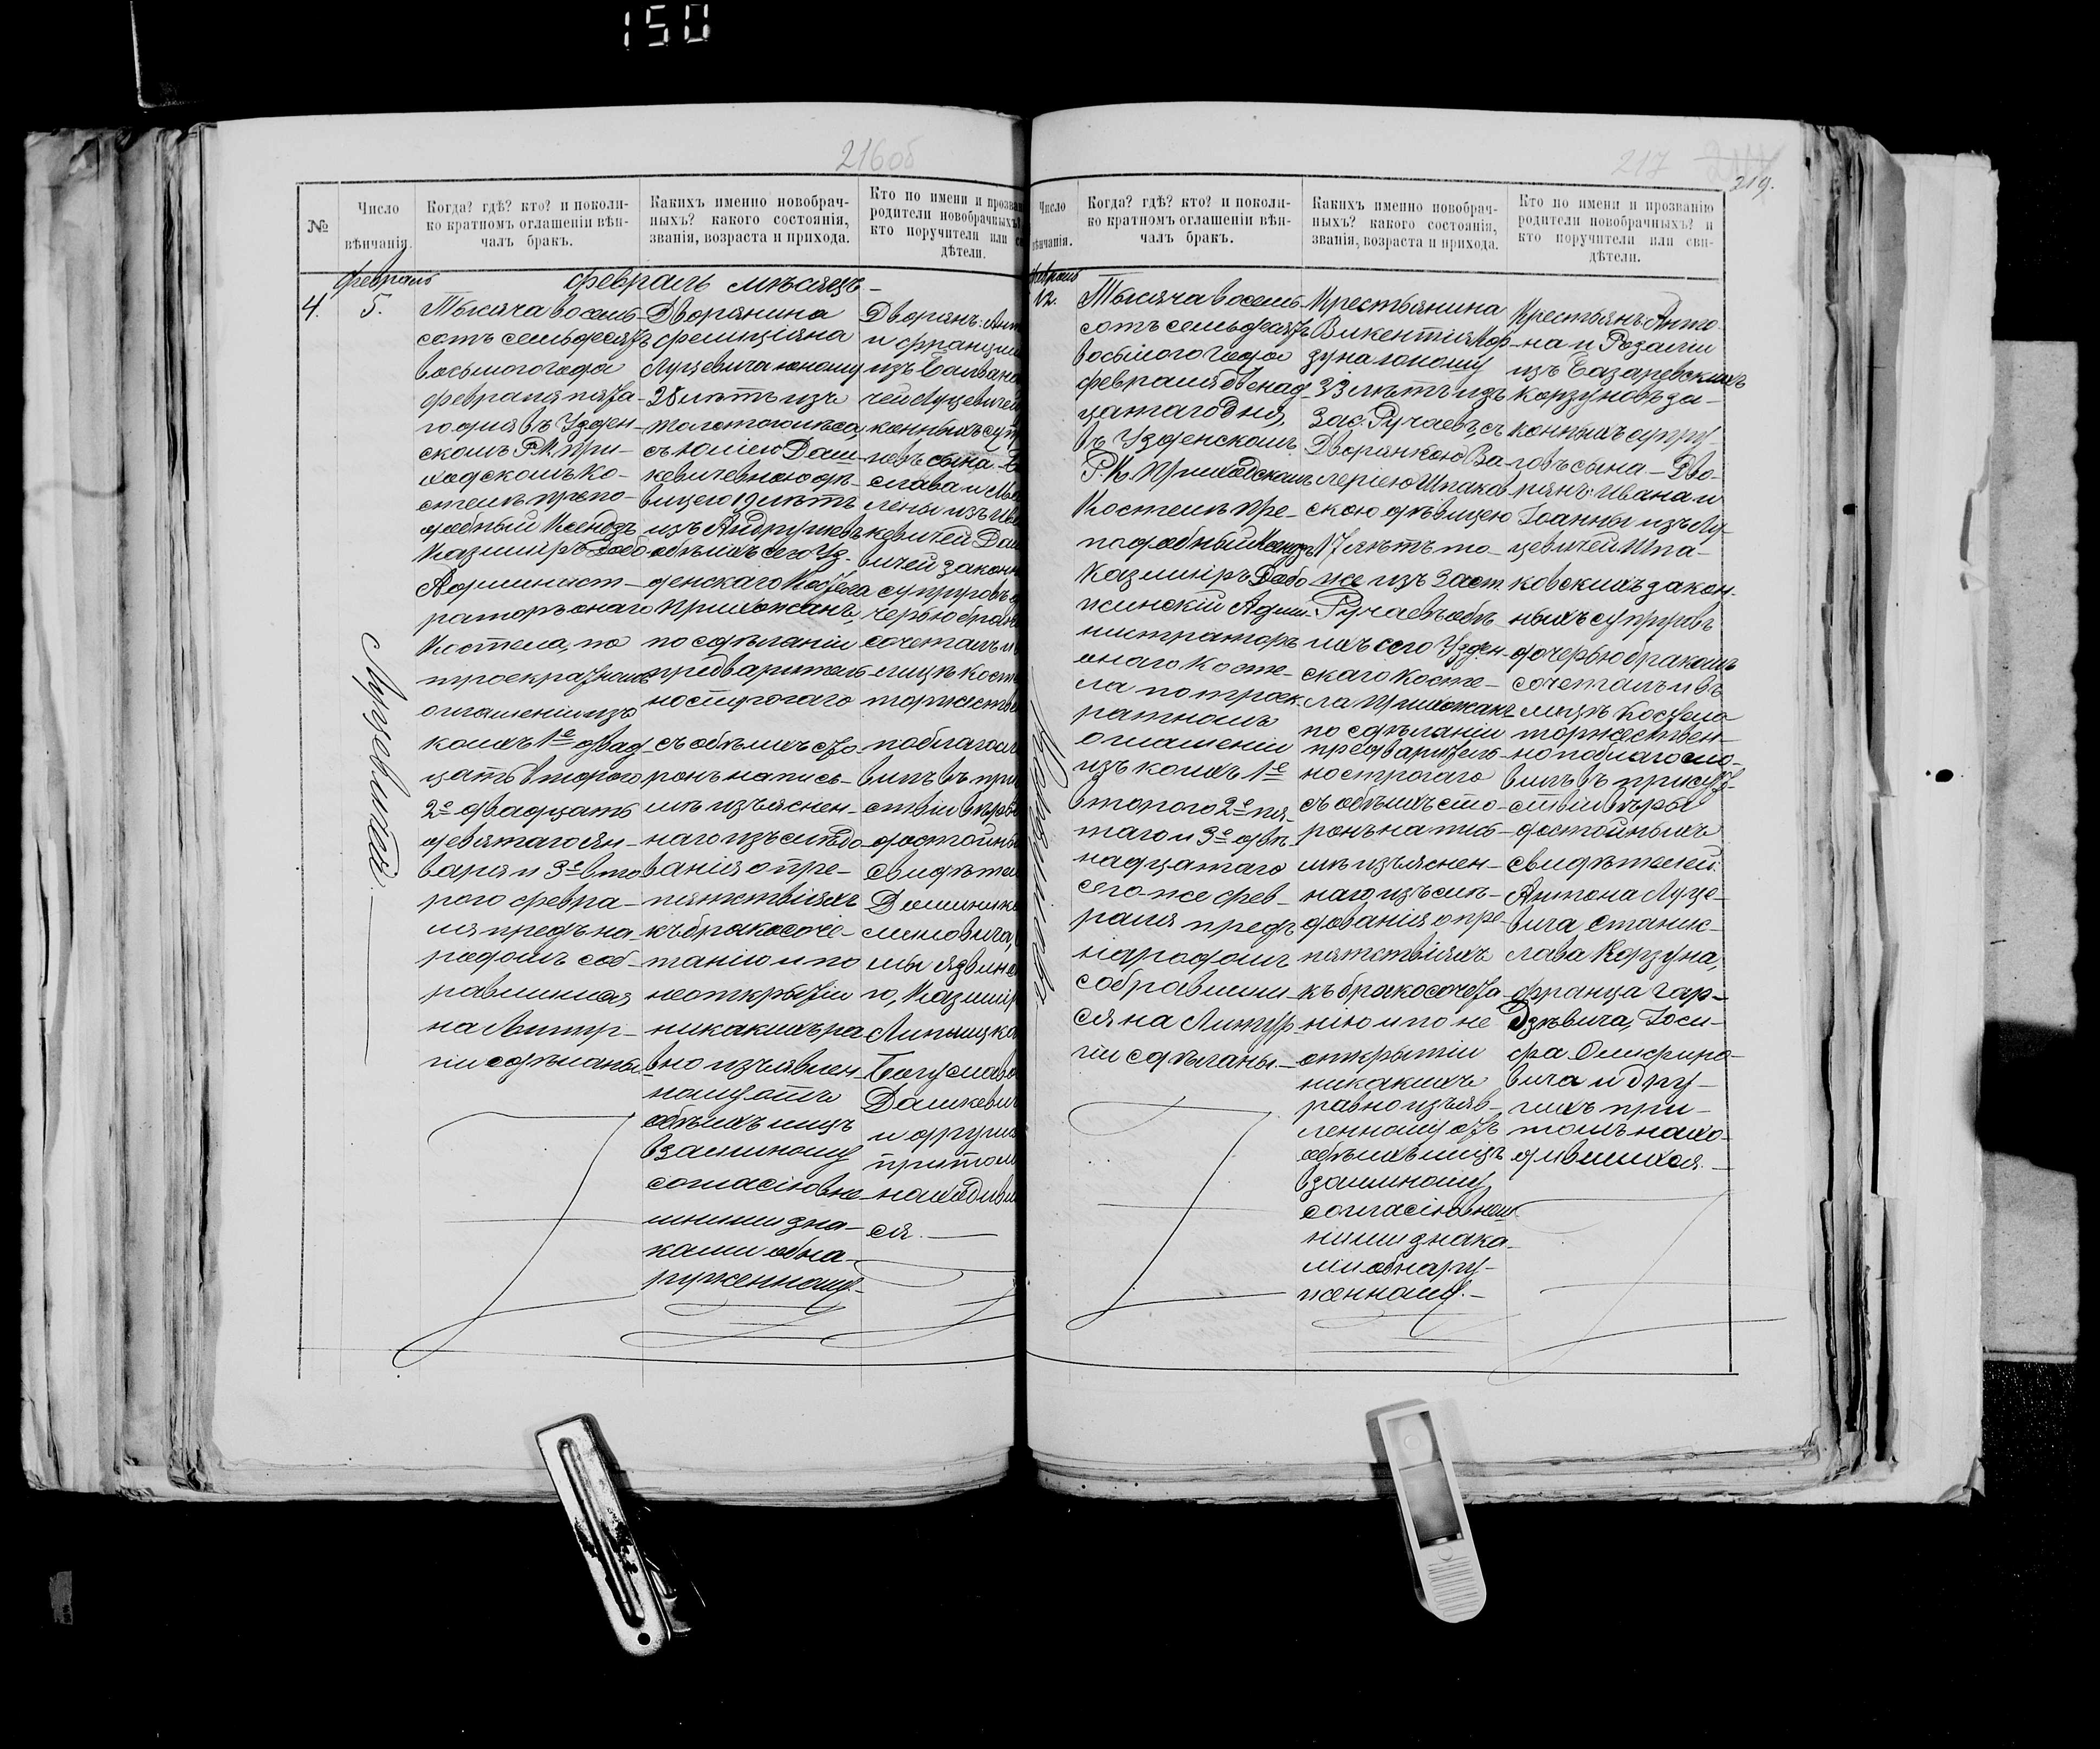 150
216об
№
Число
вѣнчанія.
Когда? гдѣ? кто? и поколи-
ко кратномъ оглашеніи вѣн-
чалъ бракъ.
Какихъ именно новобрач-
ныхъ? какого состоянія,
званія, возраста и прихода.
Кто по имени и прозван
родители новобрачныхъ?
кто поручители или с
дѣтели.
Февраль
февраль мѣсяцъ
4.
5.
Луцевичъ
Тысяча восемь-
сотъ семьдесятъ
восьмого года
февраля пята-
го дня въ Узден-
скомъ Р.К. при-
ходскомъ Ко-
стелѣ препо-
добный Ксендзъ
Казиміръ Добо
Админист-
раторъ онаго
Костела, по
троекратномъ
оглашеніи изъ
коихъ 1е двад-
цать второго
2е двадцать
девятаго ян-
варя и 3е вто
рого февра-
ля предъ на-
родомъ соб-
равшимся
на Литур-
гіи сдѣланы
Дворянина
Фелиціяна
Луцевича юношу
28 лѣтъ изъ
съ Юліею Даш-
кевичевною дѣ-
вицею 19 лѣтъ
изъ
обѣихъ сего Уз-
денскаго Костела
прихожанъ,
по сдѣланіи
предварительно
строгаго
съ обѣихъ сто-
ронъ на пись-
мѣ изъяснен-
наго изслѣдо
ванія о пре-
пятствіяхъ
къ бракосоче-
танію и по
неоткрытіи
никакихъ ра
вно изъявлен-
ному отъ
обѣихъ лицъ
взаимному
согласію внѣ-
шними зна-
ками обна-
руженному.
Дворянъ: Ант
и Францишк
изъ
чей Луцевичей
конныхъ супр
говъ сына
слава и
лены изъ
кевичей Даш
вичей законн
супруговъ
черью бракомъ
сочеталъ и
лицѣ Косте
торжествен
поблагосл
вилъ въ при
ствіи вѣры
достойныхъ
свидѣтел
Доминика
го, Казимір
Липницка
Богуслава
Дашкевич
и други
притом
находив
ся.
217
219.
Число
вѣнчанія.
Когда? гдѣ? кто? и поколи-
ко кратномъ оглашеніи вѣн-
чалъ бракъ.
Какихъ именно новобрач-
ныхъ? какого состоянія,
званія, возраста и прихода.
Кто по имени и прозванію
родители новобрачныхъ? и
кто поручители или сви-
дѣтели.
февраль
12.
Тысяча восемь-
сотъ семьдесятъ
восьмого года
февраля двенад-
цатаго дня,
въ Узденскомъ
Р.К. Приходскомъ
Костелѣ пре-
подобный Ксендзъ
Казиміръ Добо
жинскій Адми-
нистраторъ
онаго Косте-
ла по троек-
ратномъ
оглашеніи
изъ коихъ 1е
второго 2е пя-
таго и 3е двѣ-
надцатаго
сего-же фев-
раля предъ
народомъ
собравшим-
ся на Литур-
гіи сдѣланы.
Крестьянина
Викентія Кор-
зуна юношу
33 лѣтъ изъ
Зас. Ручаевъ, съ
Дворянкою Ва-
леріею Шпаков-
скою дѣвицею
17 лѣтъ то-
же изъ Заст.
Ручаевъ обѣ-
ихъ сего Узден-
скаго Косте-
ла Прихожанъ
по сдѣланіи
предваритель-
но строгаго
съ обѣихъ сто-
ронъ на пись-
мѣ изъяснен-
наго изъслѣ-
дованія о пре-
пятствіяхъ
къ бракосочета
нію и по не
открытіи
никакихъ
равно изъяв-
ленному отъ
обѣихъ лицъ
взаимному
согласію внѣш-
ними знака-
ми обнару-
женному.
Крестьянъ: Анто-
на и Розаліи
изъ
Корзуновъ за-
конныхъ супру-
говъ сына - Дво-
рянъ: Ивана и
Іоанны изъ Лу-
цевичей Шпа-
ковскихъ закон-
ныхъ супруговъ
дочерью бракомъ
сочеталъ и въ
лицѣ Костела
торжествен-
но поблагосло-
вилъ въ присут-
ствіи вѣры
достойныхъ
свидѣтелей:
Антона Луце-
вича, Станис-
лава Корзуна,
Франца Гар-
Іоси-
фа Олифиро-
вича и дру-
гихъ при-
томъ нахо-
дившихся.